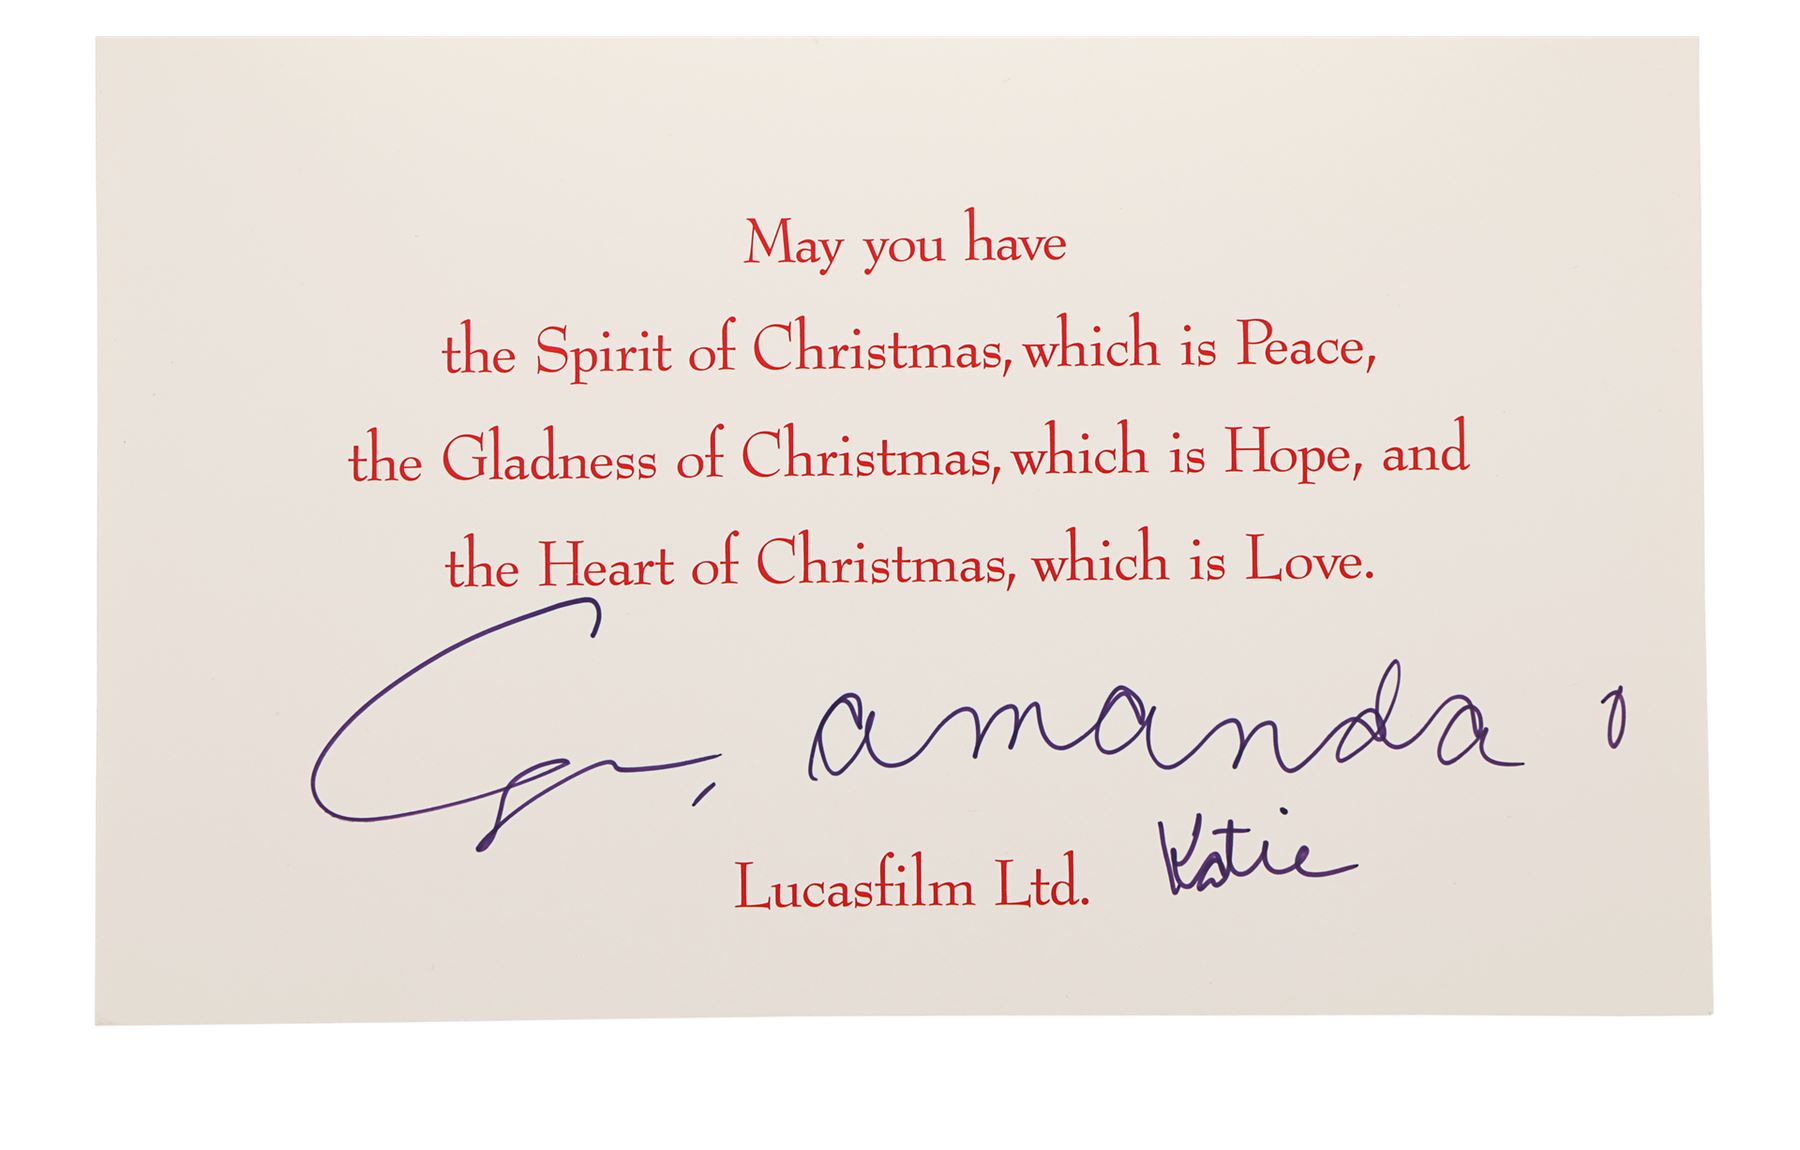 May you have
the Spirit of Christmas, which is Peace,
the Gladness of Christmas, which is Hope, and
the Heart of Christmas, which is Love.
amanda
Katie
Lucasfilm Ltd.